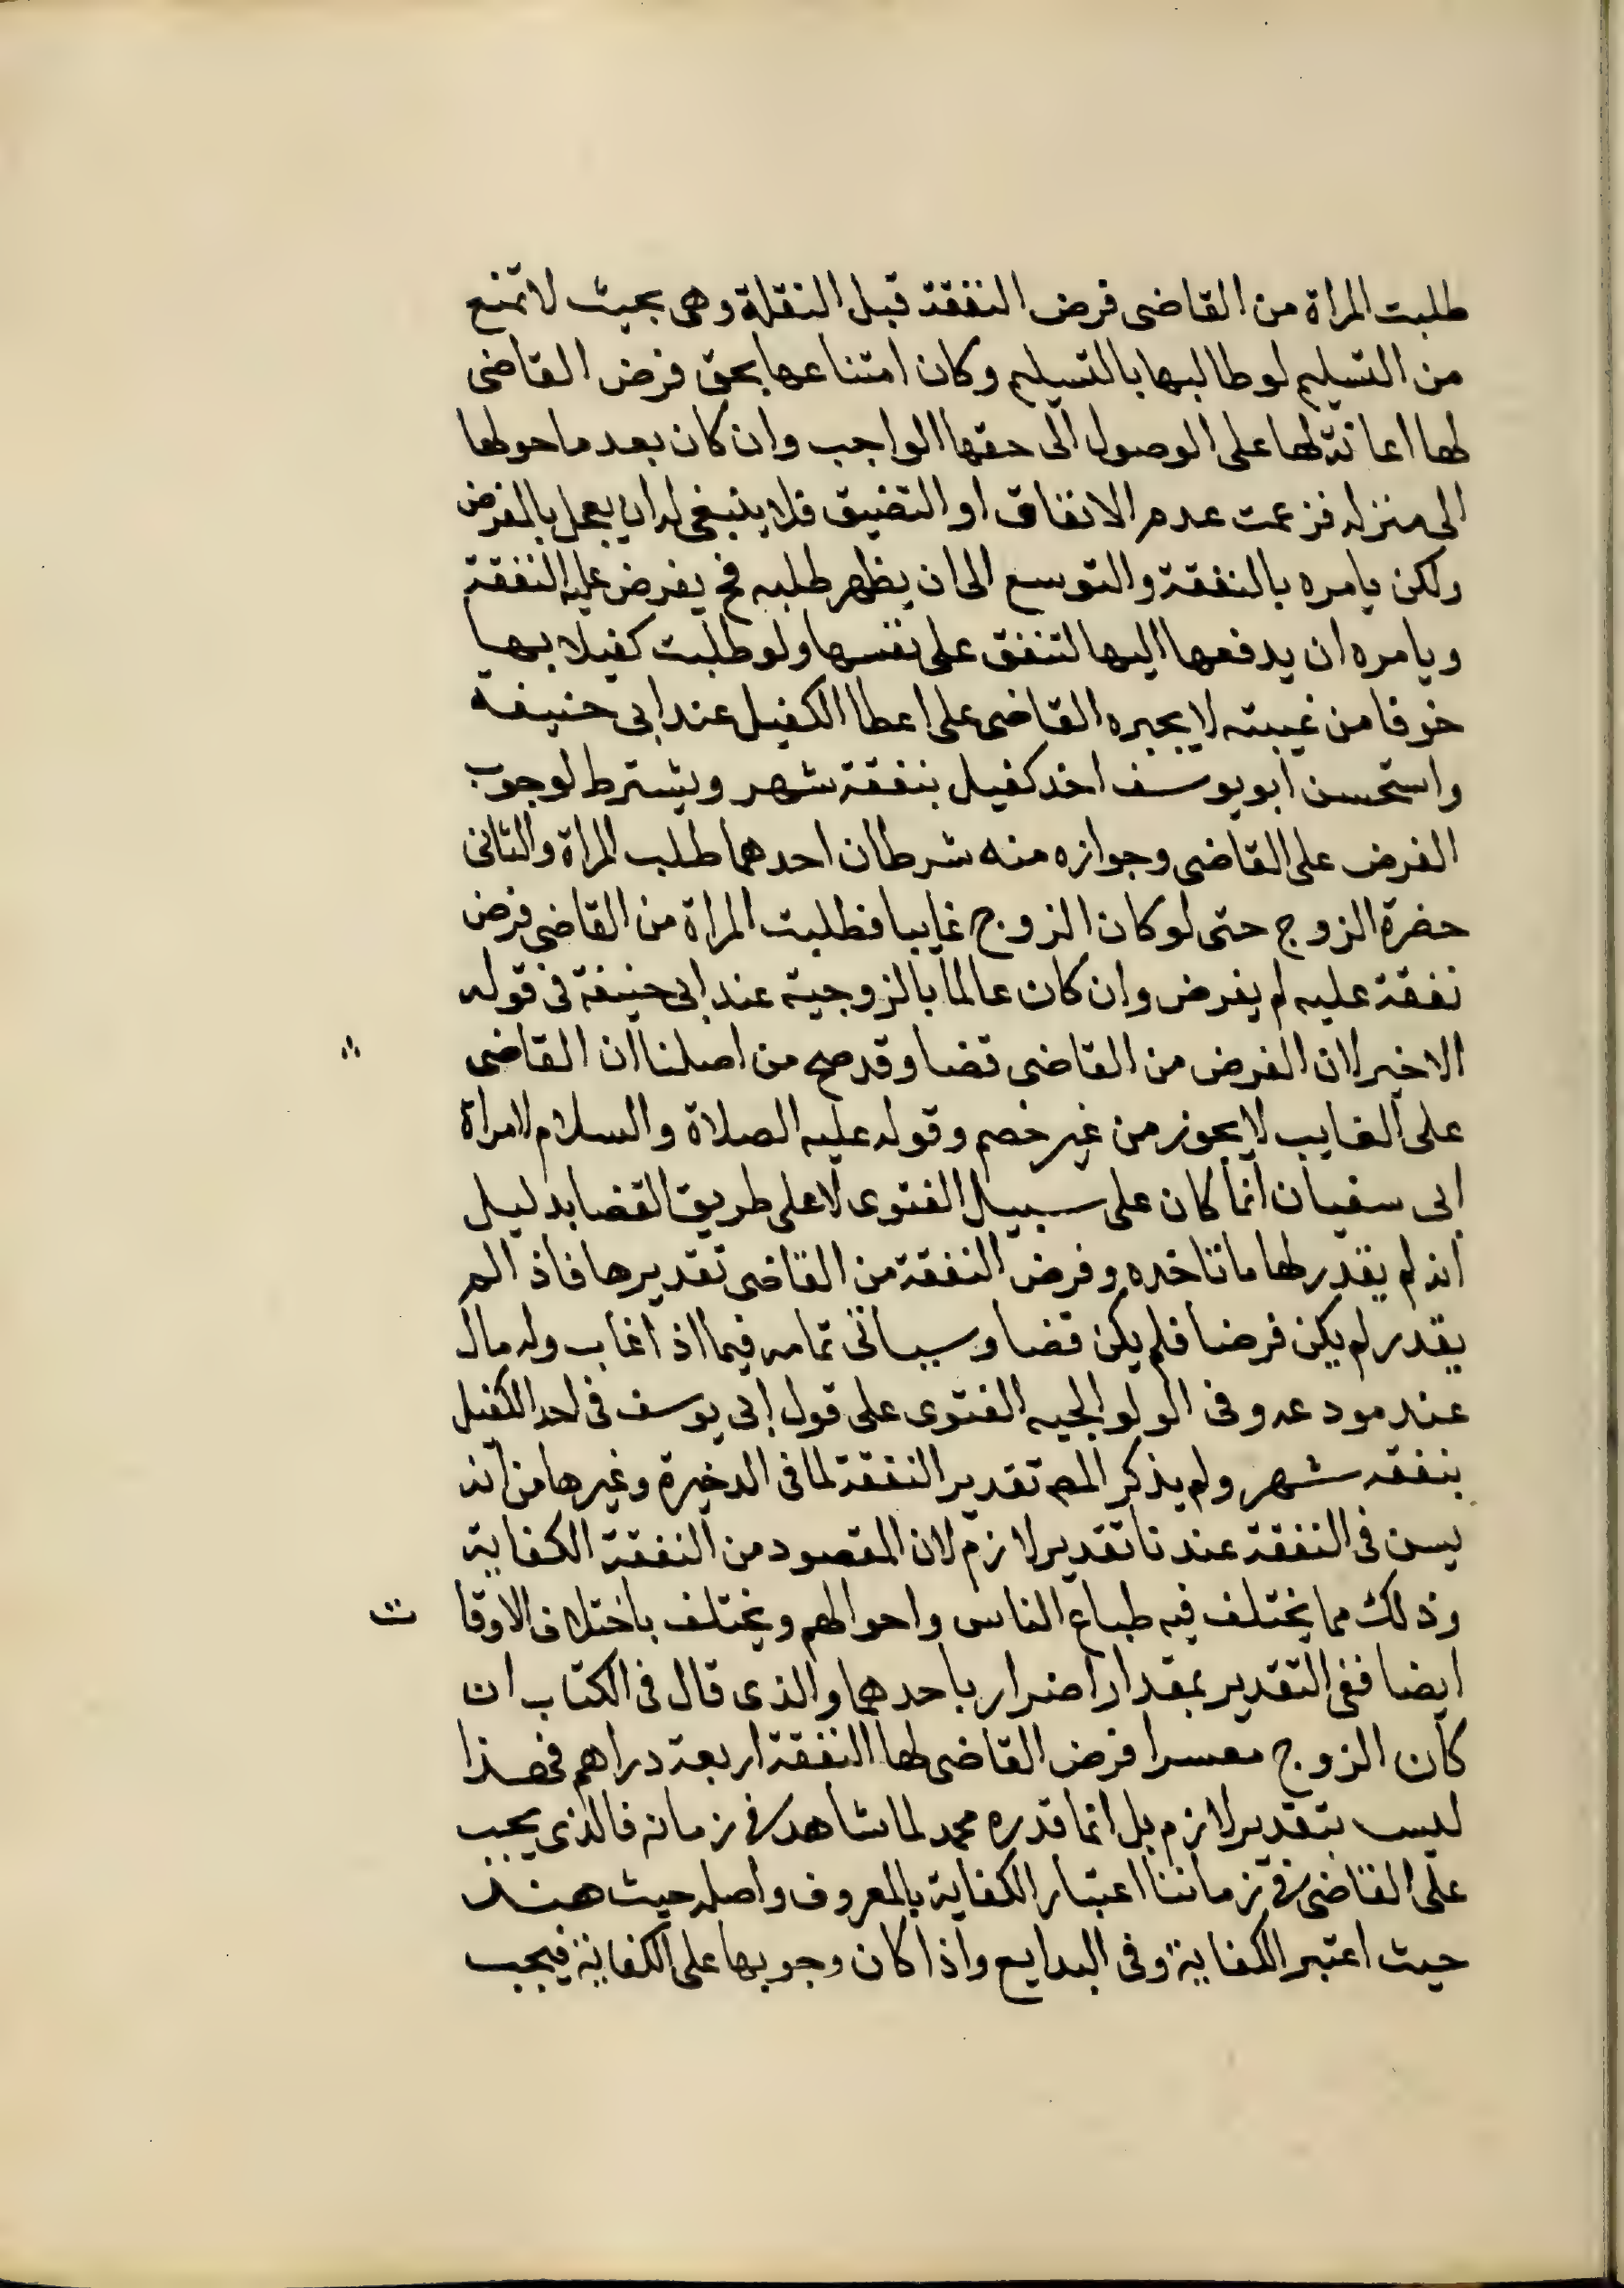 طلبت المراة من القاضى فرض النفقة قبل النقلة وهى بحيث لا تمنع
من التسليم لو طالبها بالتسليم وكان امتناعها بحق فرض القاضى
لها اعانة لها على الوصول الى حقها الواجب وان كان بعد ما حولها
الى منزله فزعمت عدم الانفاق او التضيق فلا ينبغى له ان يعجل بالفرض
ولكن يامره بالنفقة والتوسع الى ان يظهر طلبه فح يفرض عليه النفقة
ويامره ان يدفعها اليها لتنفق على نفسها ولو طلبت كفيلا بها
خوفا من غيبته لا يجبره القاضى على اعطا الكفيل عند ابى حنيفة
واستحسن ابو يوسف اخذ كفيل بنفقة شهر ويشترط لوجوب
الفرض على القاضى وجوازه منه شرطان احدهما طلب المراة والثانى
حضرة الزوج حتى لو كان الزوج غايبا فطلبت المراة من القاضى فرض
نفقة عليه لم يفرض وان كان عالما بالزوجية عند ابى حنيفة فى قوله
الاخير لان الفرض من القاضى قضا وقد صح من اصلنا ان القاضى
على الغايب لا يجوز من غير خصم وقوله عليه الصلاة والسلام لامراة
ابى سفيان انما كان على سبيل الفتوى لا على طريق القضا بدليل
انه لم يقدر لها ما تاخذه وفرض النفقة من القاضى تقديرها فاذا لم
يقدر لم يكن فرضا فلم يكن قضا وسياتى تمامه فيما اذا غاب وله مال
عند مودعه وفى الولوالجيه الفتوى على قول ابى يوسف فى اخذ الكفيل
بنفقه شهر ولم يذكر المص تقدير النفقة لما فى الدخيرة وغيرها من انه
ليس فى النفقة عندنا تقدير لازم لان المقصود من النفقة الكفاية
وذلك مما يختلف فيه طباع الناس واحوالهم ويختلف باختلاف الاوقات
ايضا ففى التقدير بمقدار اضرار باحدهما والذى قال فى الكتاب ان
كان الزوج معسرا فرض القاضى لها النفقة اربعة دراهم فهذا
ليس بتقدير لازم بل انما قدره محمد لما شاهد فى زمانه فالذى يجب
على القاضى فى زماننا اعتبار الكفاية بالمعروف واصله حيث هند
حيث اعتبر الكفاية وفى البدايع واذا كان وجوبها على الكفاية فيجب